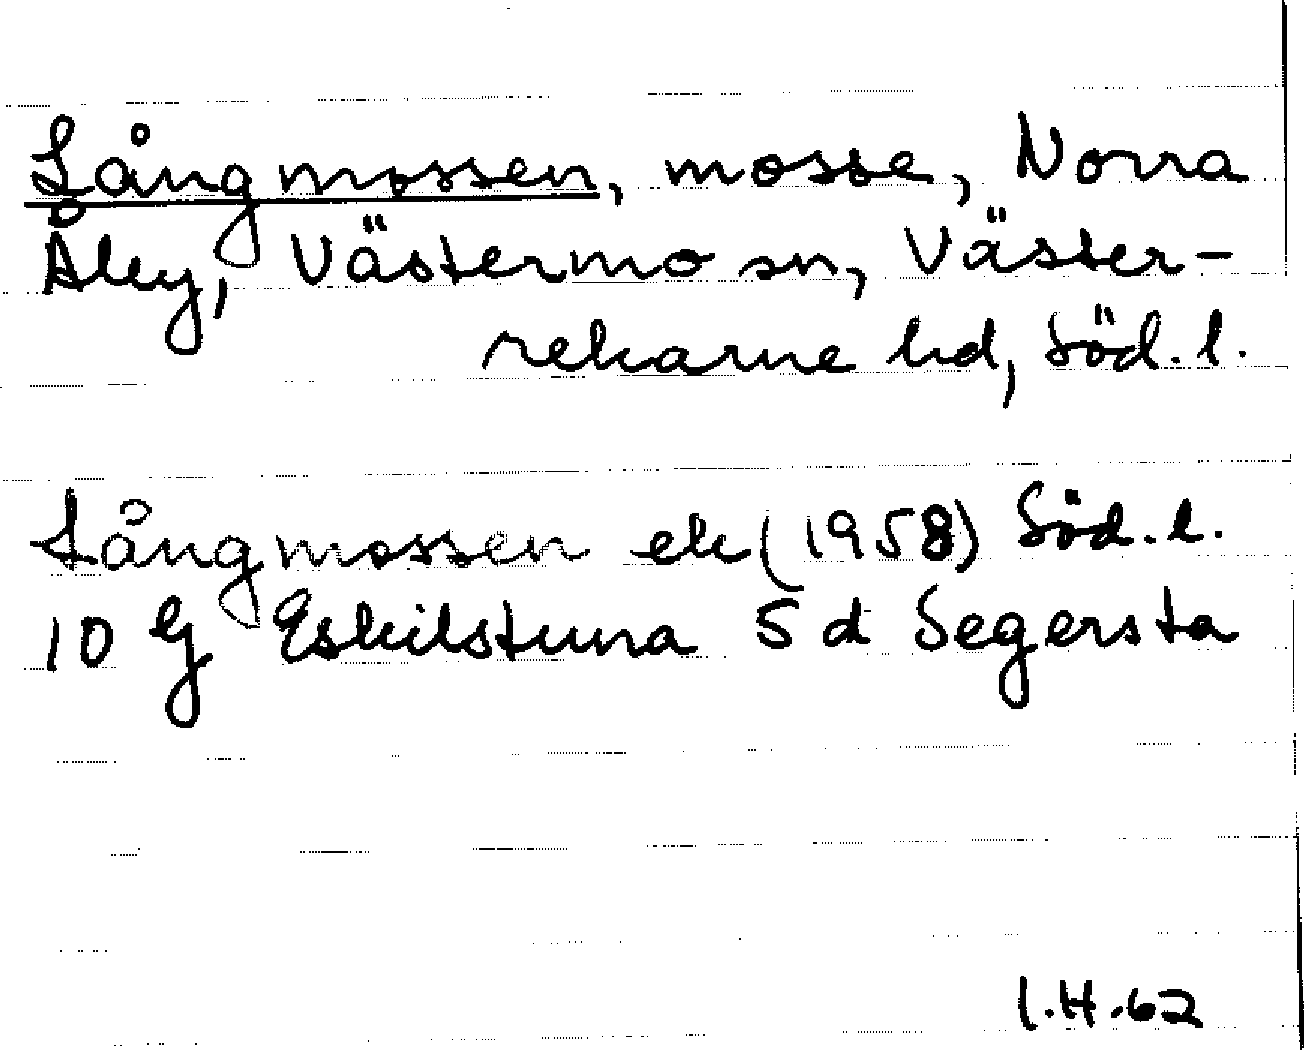 Långmossen, mosse, Norra
Åby, Västermo sn, Väster-
rekarne hd, Söd.l.
Långmossen ek (1958) Söd.l.
10 G Eskilstuna 5 d Segersta
I.H.62